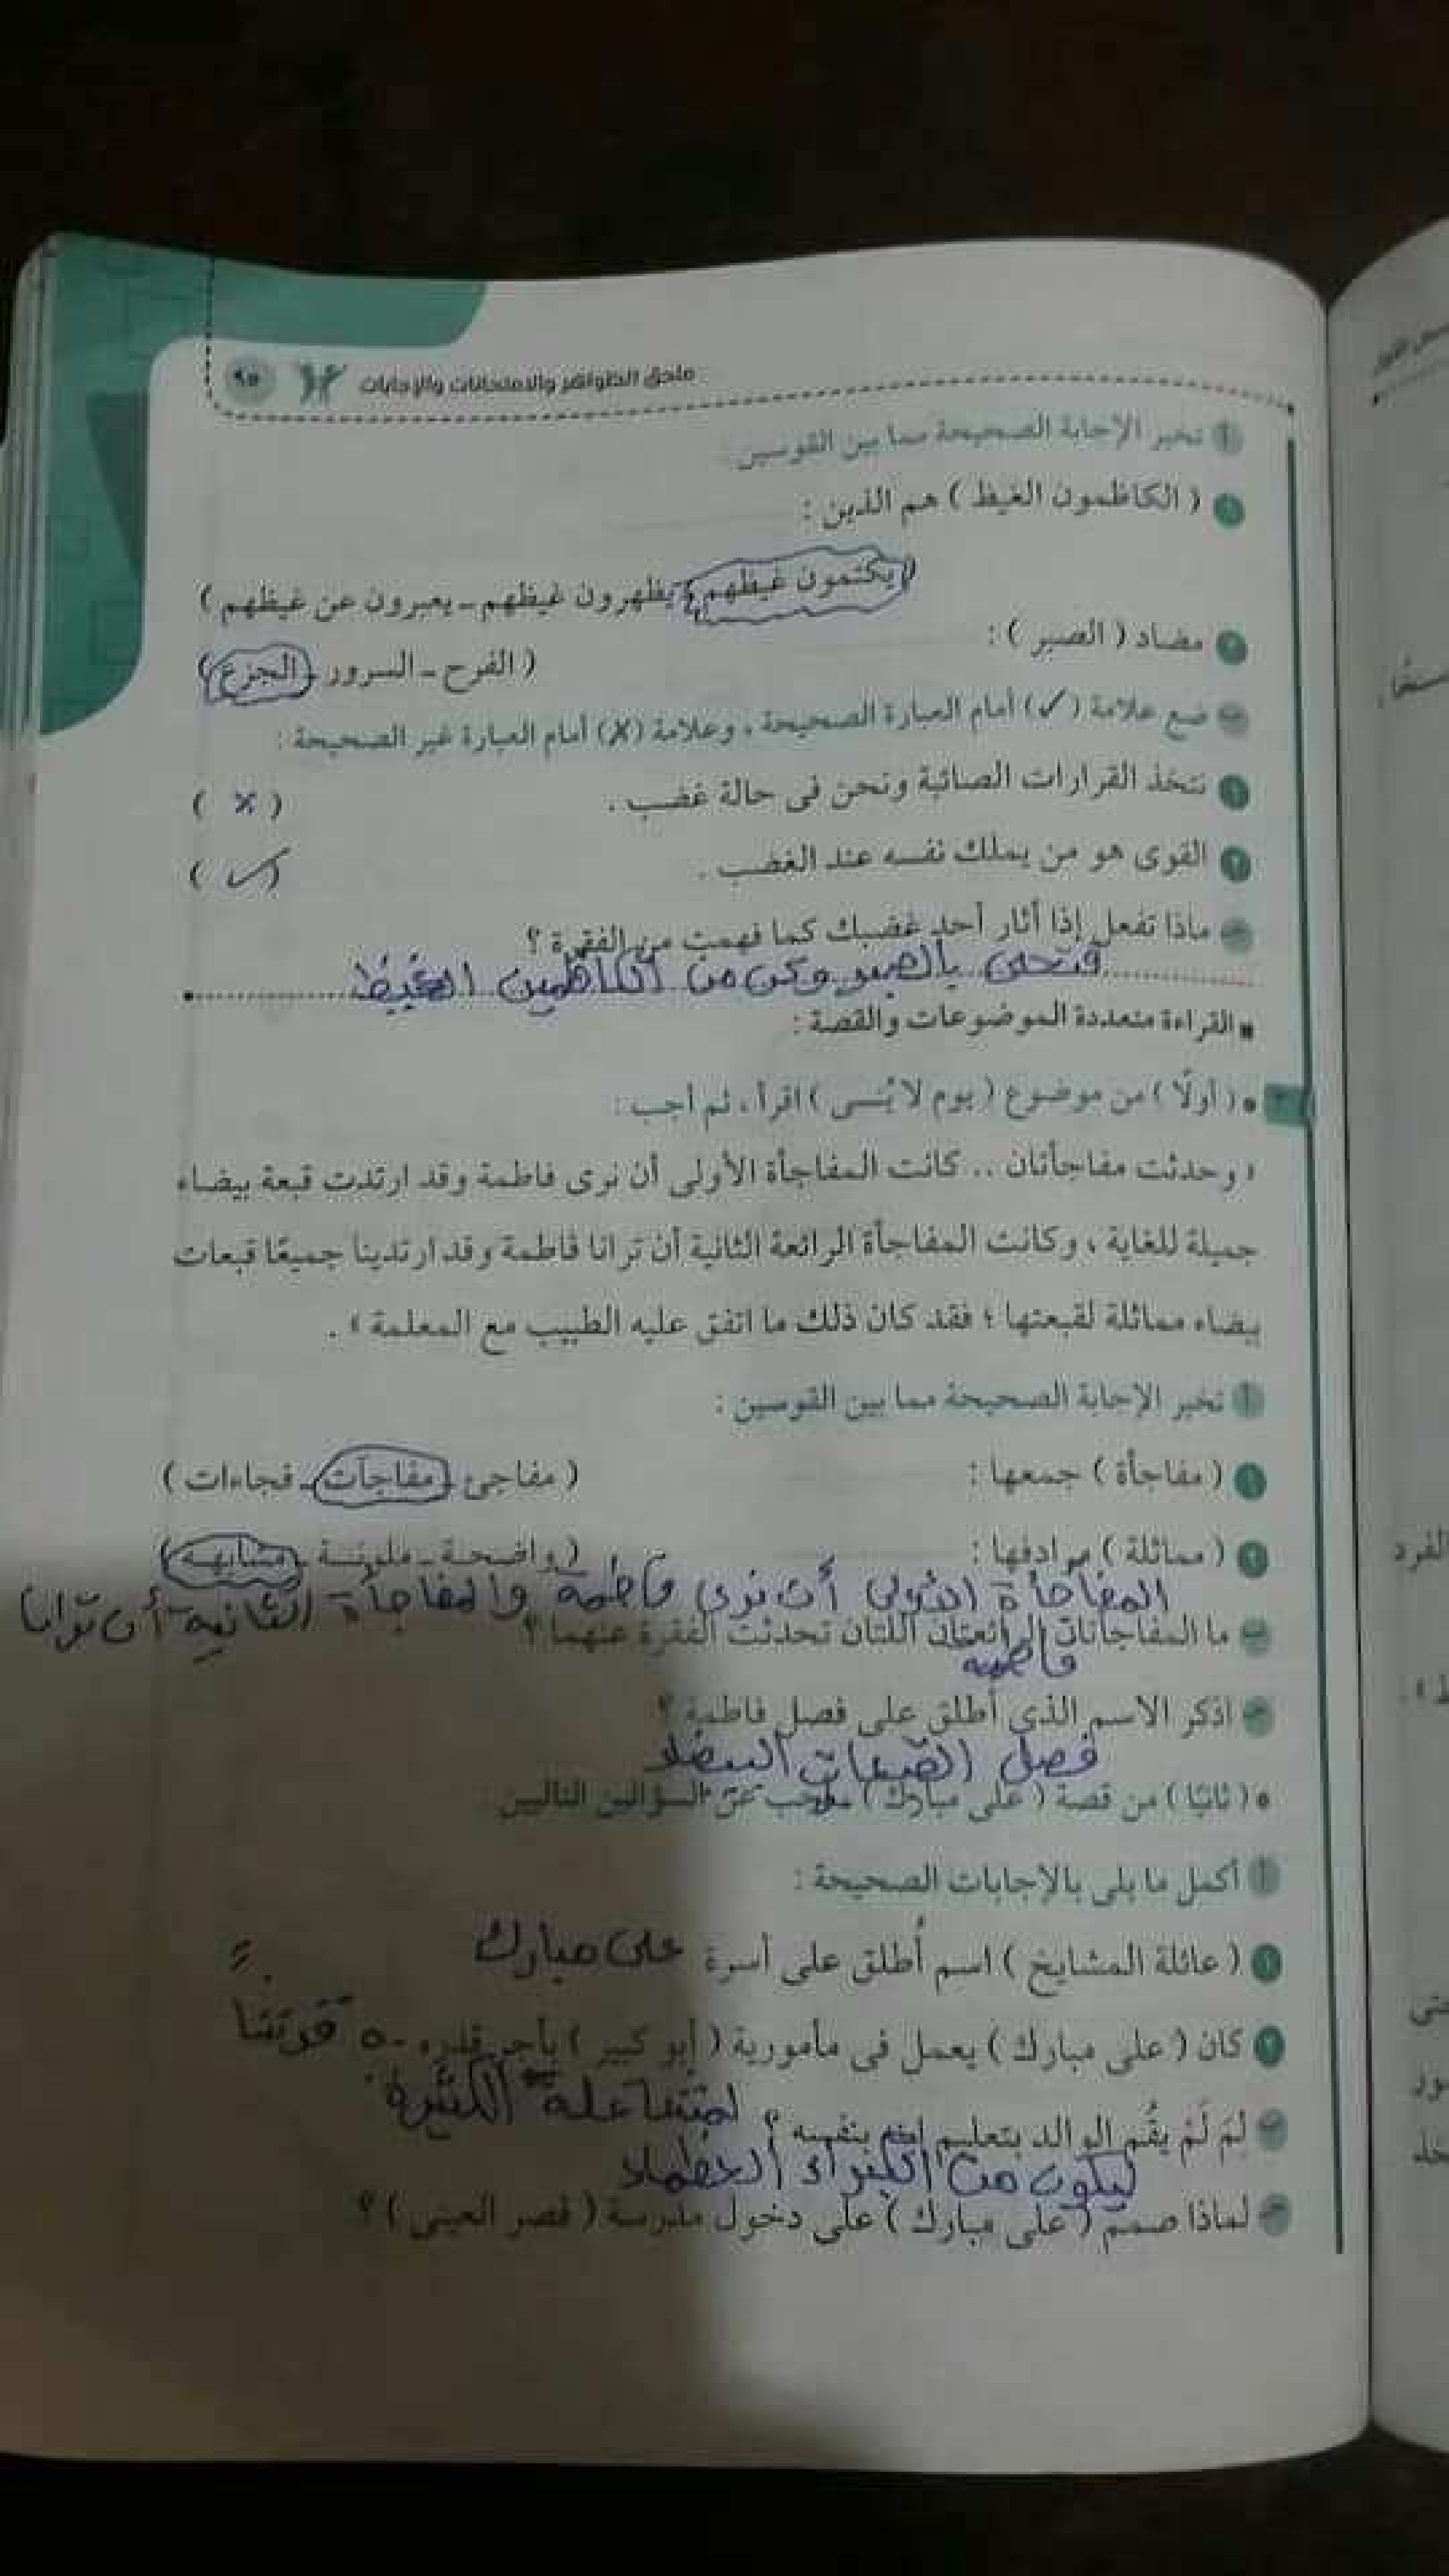 ملحق الظواهر والامتحانات والإجابات ٩٥
أ تخير الإجابة الصحيحة مما بين القوسين :
١ ( الكاظمون الغيظ ) هم الذين :
( يكتمون غيظهم - يظهرون غيظهم - يعبرون عن غيظهم )
٢ مضاد ( الصبر ) : ( الفرح - السرور - الجزع )
ب ضع علامة (✓) أمام العبارة الصحيحة ، وعلامة (✗) أمام العبارة غير الصحيحة :
١ نتخذ القرارات الصائبة ونحن فى حالة غضب . ( ✗ )
٢ القوى هو من يملك نفسه عند الغضب . ( ✓ )
ج ماذا تفعل إذا أثار أحد غضبك كما فهمت من الفقرة ؟
بالصبر وكن من الكاظمين الغيظ
■ القراءة متعددة الموضوعات والقصة :
• ( أولًا ) من موضوع ( يوم لا يُنسى ) اقرأ ، ثم أجب :
« وحدثت مفاجأتان .. كانت المفاجأة الأولى أن نرى فاطمة وقد ارتدت قبعة بيضاء
جميلة للغاية ، وكانت المفاجأة الرائعة الثانية أن ترانا فاطمة وقد ارتدينا جميعًا قبعات
بيضاء مماثلة لقبعتها ؛ فقد كان ذلك ما اتفق عليه الطبيب مع المعلمة » .
أ تخير الإجابة الصحيحة مما بين القوسين :
١ ( مفاجأة ) جمعها : ( مفاجئ - مفاجآت - فجاءات )
٢ ( مماثلة ) مرادفها : ( واضحة - ملونة - مشابهة )
المفاجأة الأولى أن نرى فاطمة والمفاجأة الثانية أن ترانا
ب ما المفاجأتان الرائعتان اللتان تحدثت الفقرة عنهما ؟
فاطمه
ج اذكر الاسم الذى أُطلق على فصل فاطمة ؟
فصل القبعات البيضاء
• ( ثانيًا ) من قصة ( على مبارك ) أجب عن السؤالين التاليين
أ أكمل ما يلى بالإجابات الصحيحة :
١ ( عائلة المشايخ ) اسم أُطلق على أسرة على مبارك
٢ كان ( على مبارك ) يعمل فى مأمورية ( أبو كبير ) بأجر قدره
ب لمَ لَمْ يقُم الوالد بتعليم ابنه بنفسه ؟ الكثيرة
ليكون من
ج لماذا صمم ( على مبارك ) على دخول مدرسة ( قصر العينى ) ؟